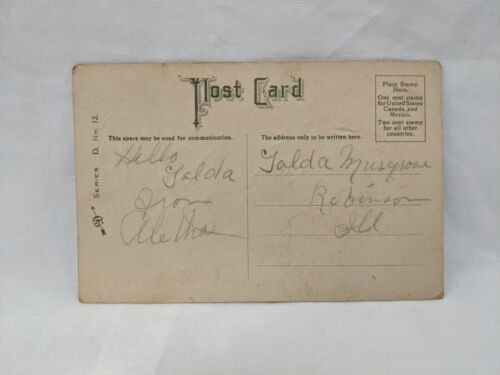 Post Card
Place Stamp
Here.
One cent stamp
for United States
Canada, and
Mexico.
Two cent stamp
for all other
countries.
This space may be used for communication.
The address only to be written here.
SERIES D. No. 12.
Hello
Galda
From
Aletha
Galda Musgrove
Robinson
Ill